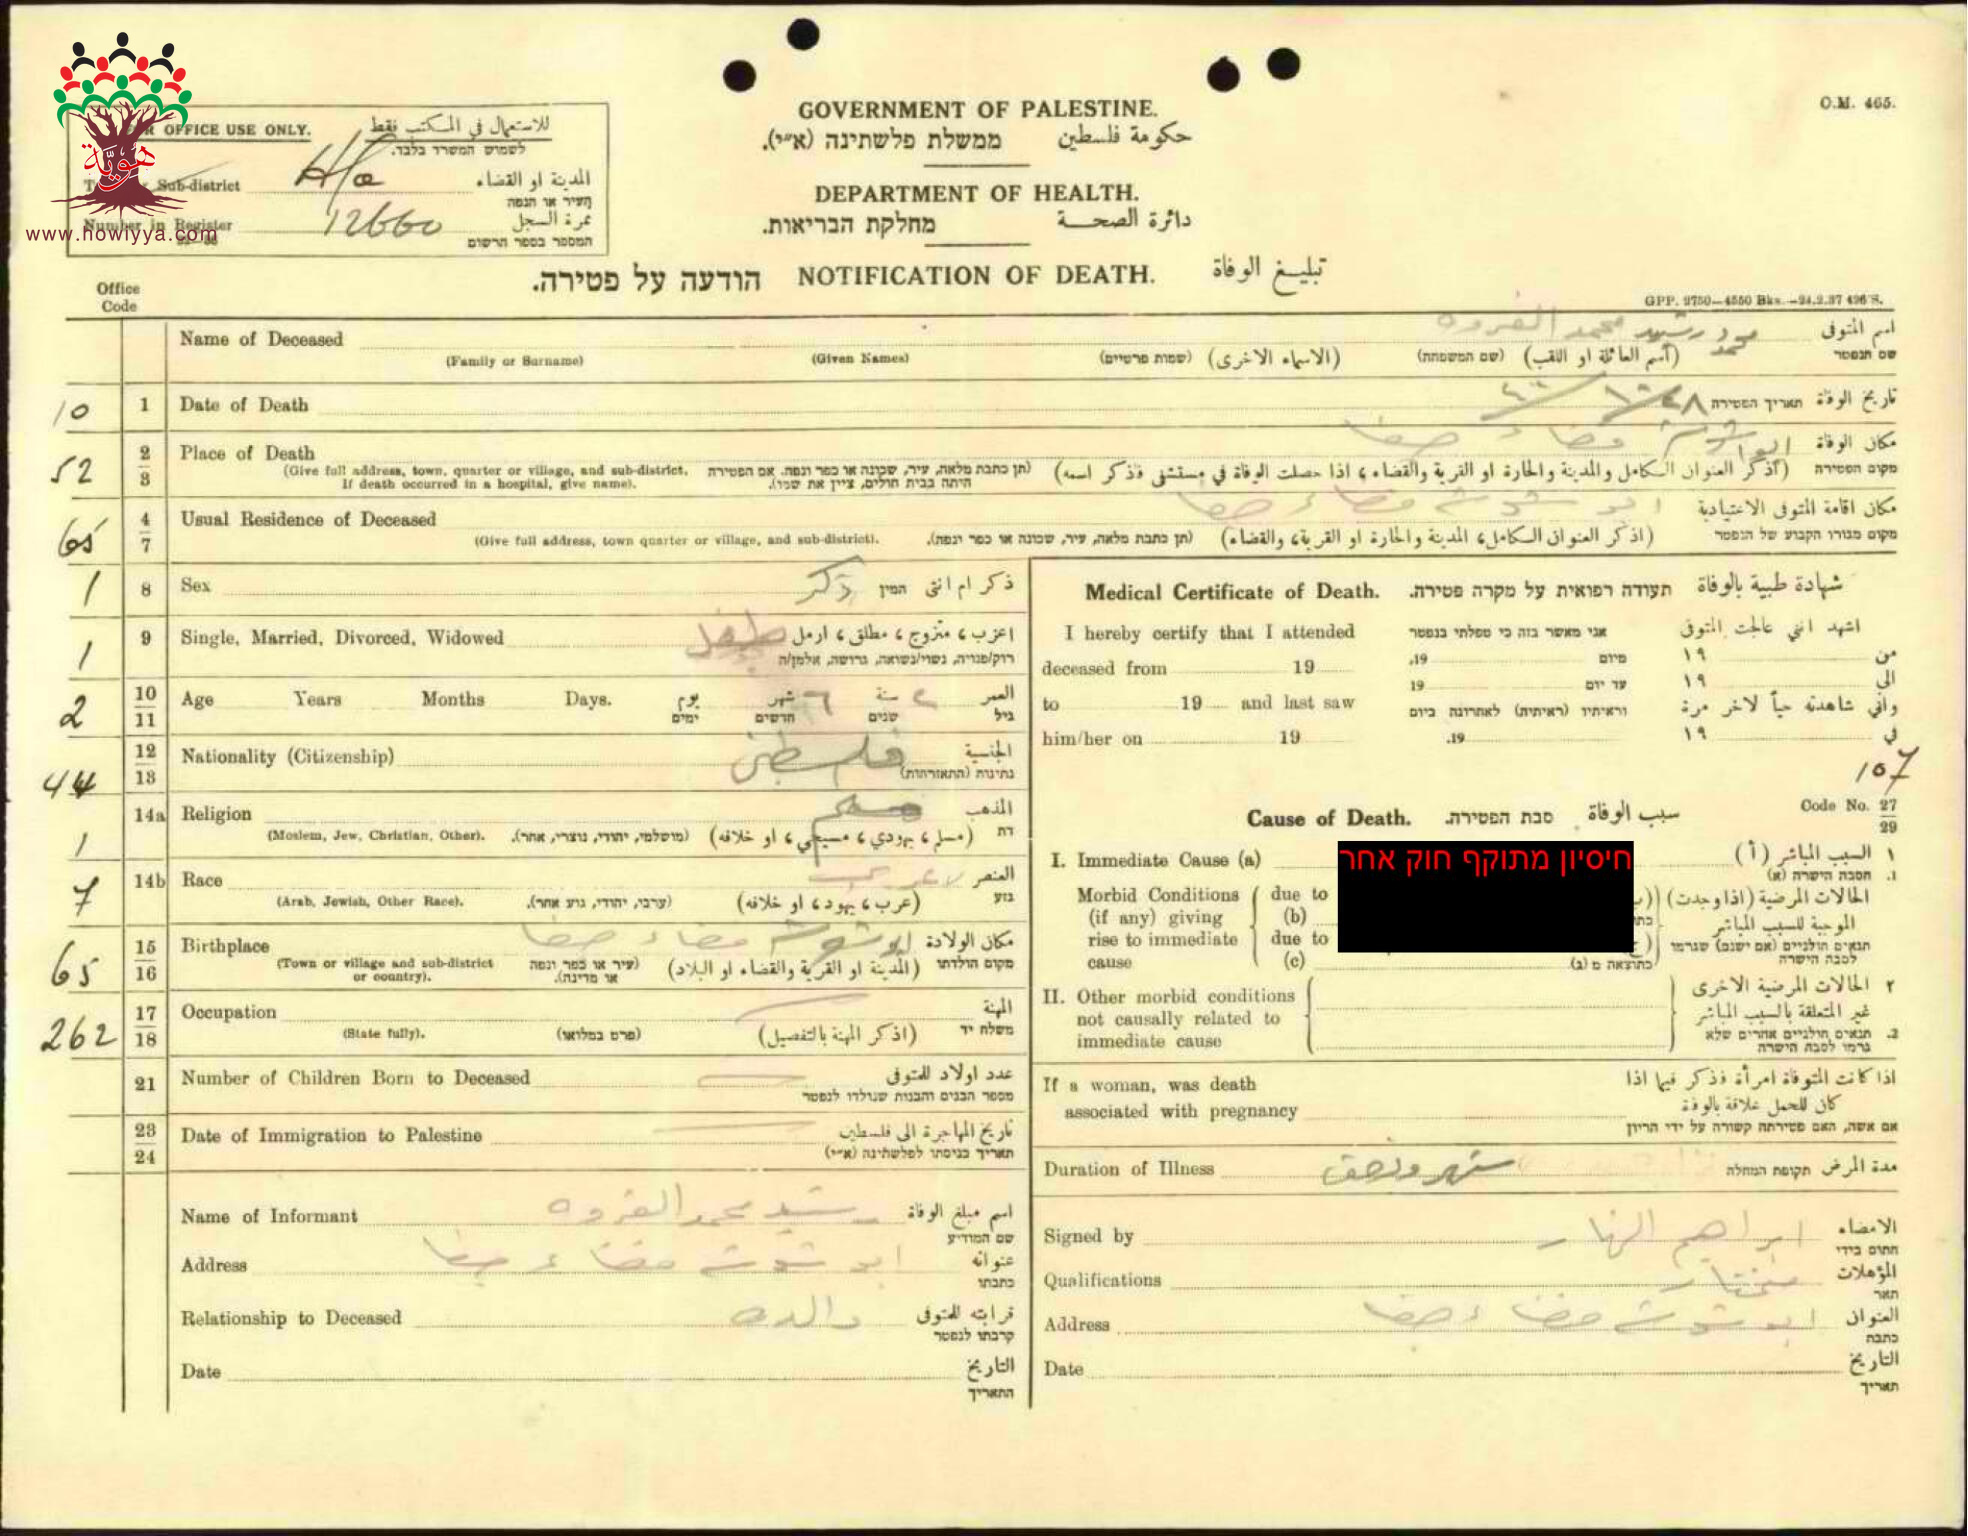 O.M. 465.
FOR OFFICE USE ONLY. للاستعمال في المكتب فقط
לשמוש המשרד בלבד.
Sub-district Hfa المدينة او القضاء
העיר או הנפה
Number in Register 12660 نمرة السجل
המספר בספר הרשום
هوية
www.howiyya.com
GOVERNMENT OF PALESTINE.
حكومة فلسطين ממשלת פלשתינה (א״י).
DEPARTMENT OF HEALTH.
دائرة الصحة מחלקת הבריאות.
הודעה על פטירה. NOTIFICATION OF DEATH. تبليغ الوفاة
GPP. 2750—4550 Bks.—24.2.37 426/S.
Office
Code
Name of Deceased محمد رشيد محمد اسم المتوفى
שם הנפטר
(Family or Surname) (Given Names) (שמות פרטיים) (الاسماء الاخرى) (שם המשפחה) (اسم العائلة او اللقب)
10 1 Date of Death תאריך הפטירה تاريخ الوفاة
52 2/3 Place of Death قضاء حيفا مكان الوفاة
מקום הפטירה
(Give full address, town, quarter or village, and sub-district. (תן כתבת מלאה, עיר, שכונה או כפר ונפה. אם הפטירה (اذكر العنوان الكامل والمدينة والحارة او القرية والقضاء، اذا حصلت الوفاة في مستشفى فذكر اسمه)
If death occurred in a hospital, give name). היתה בבית חולים, ציין את שמו).
65 4/7 Usual Residence of Deceased ابو شوشة قضاء حيفا مكان اقامة المتوفى الاعتيادية
מקום מגורו הקבוע של הנפטר
(Give full address, town quarter or village, and sub-district). (תן כתבת מלאה, עיר, שכונה או כפר ונפה). (اذكر العنوان الكامل، المدينة والحارة او القرية، والقضاء)
1 8 Sex ذكر המין ذكر ام انثى
1 9 Single, Married, Divorced, Widowed طفل اعزب، متزوج، مطلق، ارمل
רוק/פנויה, נשוי/נשואה, גרושה, אלמן/ה
2 10/11 Age Years Months Days. يوم ٦ شهر ٢ سنة العمر
ימים חדשים שנים גיל
44 12/13 Nationality (Citizenship) فلسطيني الجنسية
נתינות (התאזרחות)
1 14a Religion مسلم المذهب
(Moslem, Jew, Christian, Other). (מושלמי, יהודי, נוצרי, אחר). (مسلم، يهودي، مسيحي، او خلافه) דת
7 14b Race عربي العنصر
(Arab, Jewish, Other Race). (ערבי, יהודי, גזע אחר). (عرب، يهود، او خلافه) גזע
65 15/16 Birthplace ابو شوشة قضاء حيفا مكان الولادة
(Town or village and sub-district or country). (עיר או כפר ונפה או מדינה). (المدينة او القرية والقضاء او البلاد) מקום הולדתו
262 17/18 Occupation المهنة
(State fully). (פרט במלואו) (اذكر المهنة بالتفصيل) משלח יד
21 Number of Children Born to Deceased عدد اولاد للمتوفى
מספר הבנים והבנות שנולדו לנפטר
23/24 Date of Immigration to Palestine تاريخ المهاجرة الى فلسطين
תאריך כניסתו לפלשתינה (א״י)
Name of Informant رشيد محمد اسم مبلغ الوفاة
שם המודיע
Address ابو شوشة قضاء حيفا عنوانه
כתבתו
Relationship to Deceased والده قرابته للمتوفى
קרבתו לנפטר
Date التاريخ
התאריך
Medical Certificate of Death. תעודה רפואית על מקרה פטירה. شهادة طبية بالوفاة
I hereby certify that I attended אני מאשר בזה כי טפלתי בנפטר اشهد انني عالجت المتوفى
deceased from 19 מיום 19. من ١٩
to 19 and last saw עד יום 19 الى ١٩
וראיתיו (ראיתיה) לאחרונה ביום وانني شاهدته حياً لآخر مرة
him/her on 19 19. في ١٩
107
Code No. 27/29
Cause of Death. סבת הפטירה. سبب الوفاة
I. Immediate Cause (a) חיסיון מתוקף חוק אחר ١ السبب المباشر (أ)
1. הסבה הישרה (א)
Morbid Conditions due to الحالات المرضية (اذا وجدت)
(if any) giving (b) الموجبة للسبب المباشر
rise to immediate due to תנאים חולניים (אם ישנם) שגרמו
cause (c) לסבה הישרה
כתוצאה מ (ג)
II. Other morbid conditions ٢ الحالات المرضية الاخرى
not causally related to غير المتعلقة بالسبب المباشر
immediate cause 2. תנאים חולניים אחרים שלא
גרמו לסבה הישרה
If a woman, was death اذا كانت المتوفاة امرأة فذكر فيما اذا
associated with pregnancy كان للحمل علاقة بالوفاة
אם אשה, האם פטירתה קשורה על ידי הריון
Duration of Illness شهر ونصف תקופת המחלה مدة المرض
Signed by ابراهيم الامضاء
חתום בידי
Qualifications مختار المؤهلات
תאר
Address ابو شوشة قضاء حيفا العنوان
כתבה
Date التاريخ
תאריך